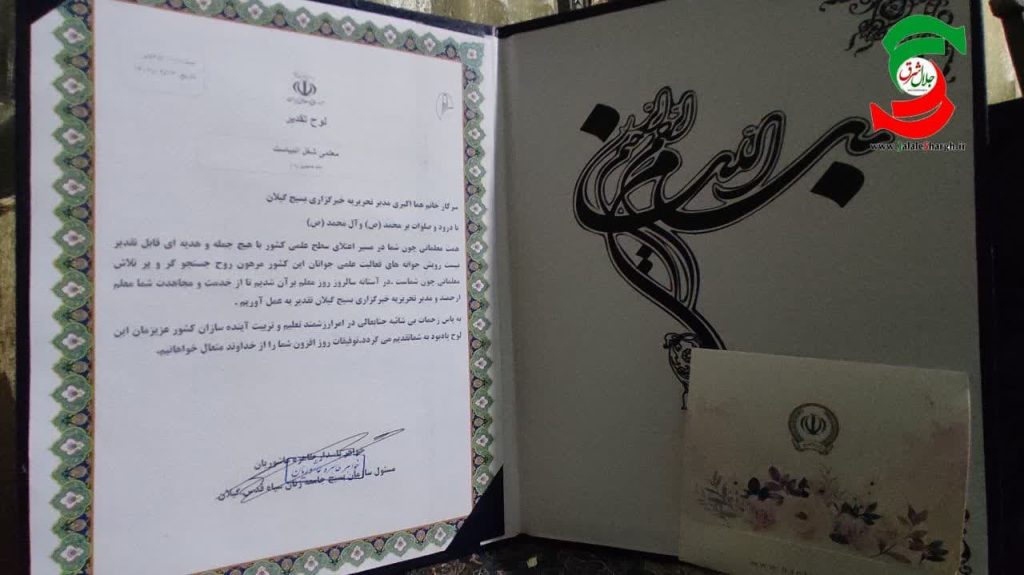 لوح تقدیر
معلمی شغل انبیاست
سرکار خانم هما اکبری مدیر تحریریه خبرگزاری بسیج گیلان
با درود و صلوات بر محمد (ص) وآل محمد (ص)
همت معلمانی چون شما در مسیر اعتلای سطح علمی کشور با هیچ جمله و هدیه ای قابل تقدیر
نیست رویش جوانه های فعالیت علمی جوانان این کشور مرهون روح جستجو گر و پر تلاش
معلمانی چون شماست .در آستانه سالروز روز معلم برآن شدیم تا از خدمت و مجاهدت شما معلم
ارجمند و مدیر تحریریه خبرگزاری بسیج گیلان تقدیر به عمل آوریم .
به پاس زحمات بی شائبه جنابعالی در امرارزشمند تعلیم و تربیت آینده سازان کشور عزیزمان این
لوح یادبود به شماتقدیم می گردد.توفیقات روز افزون شما را از خداوند متعال خواهانیم.
مسئول سازمان بسیج جامعه زنان سپاه قدس گیلان
بسم الله الرحمن الرحیم
جلال شرق
www.JalaleShargh.ir